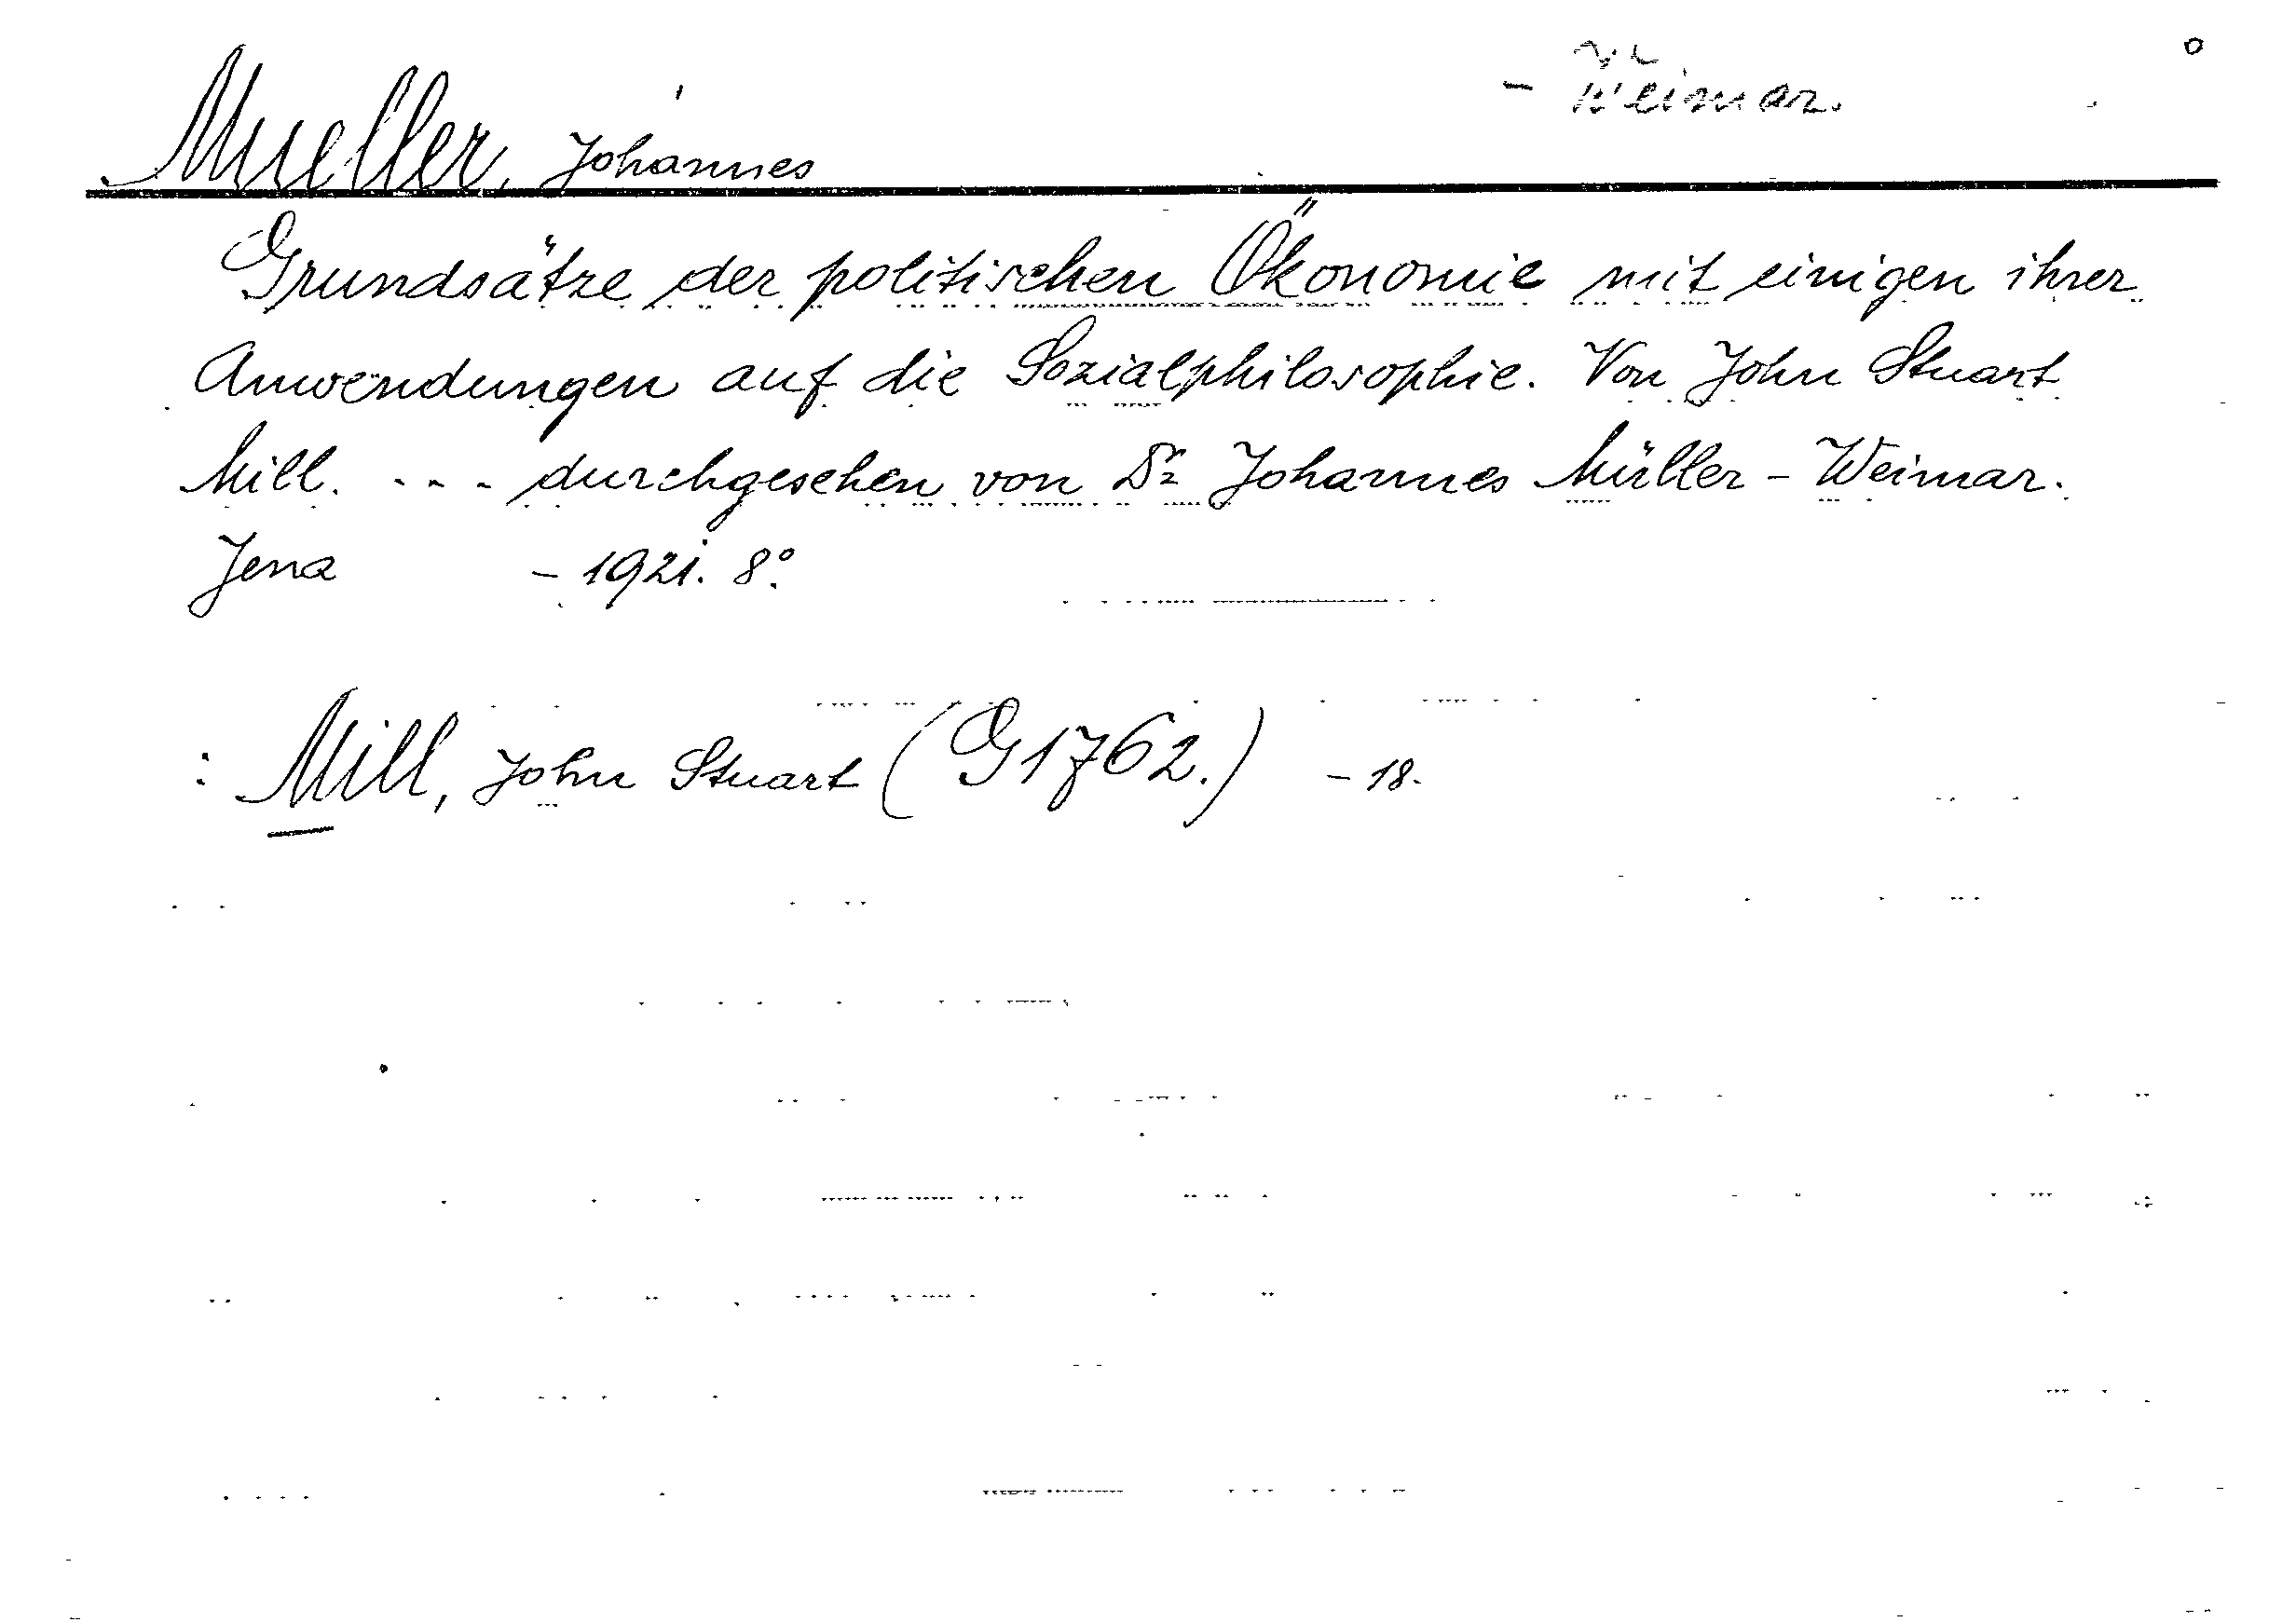 Mueller, Johannes - Weimar.
Grundsätze der politischen Ökonomie mit einigen ihrer
Anwendungen auf die Sozialphilosophie. Von John Stuart
Mill. - - - durchgesehen von Dr Johannes Müller - Weimar.
Jena - 1921. 8°.
: Mill, John Stuart (G1762.) - 18.